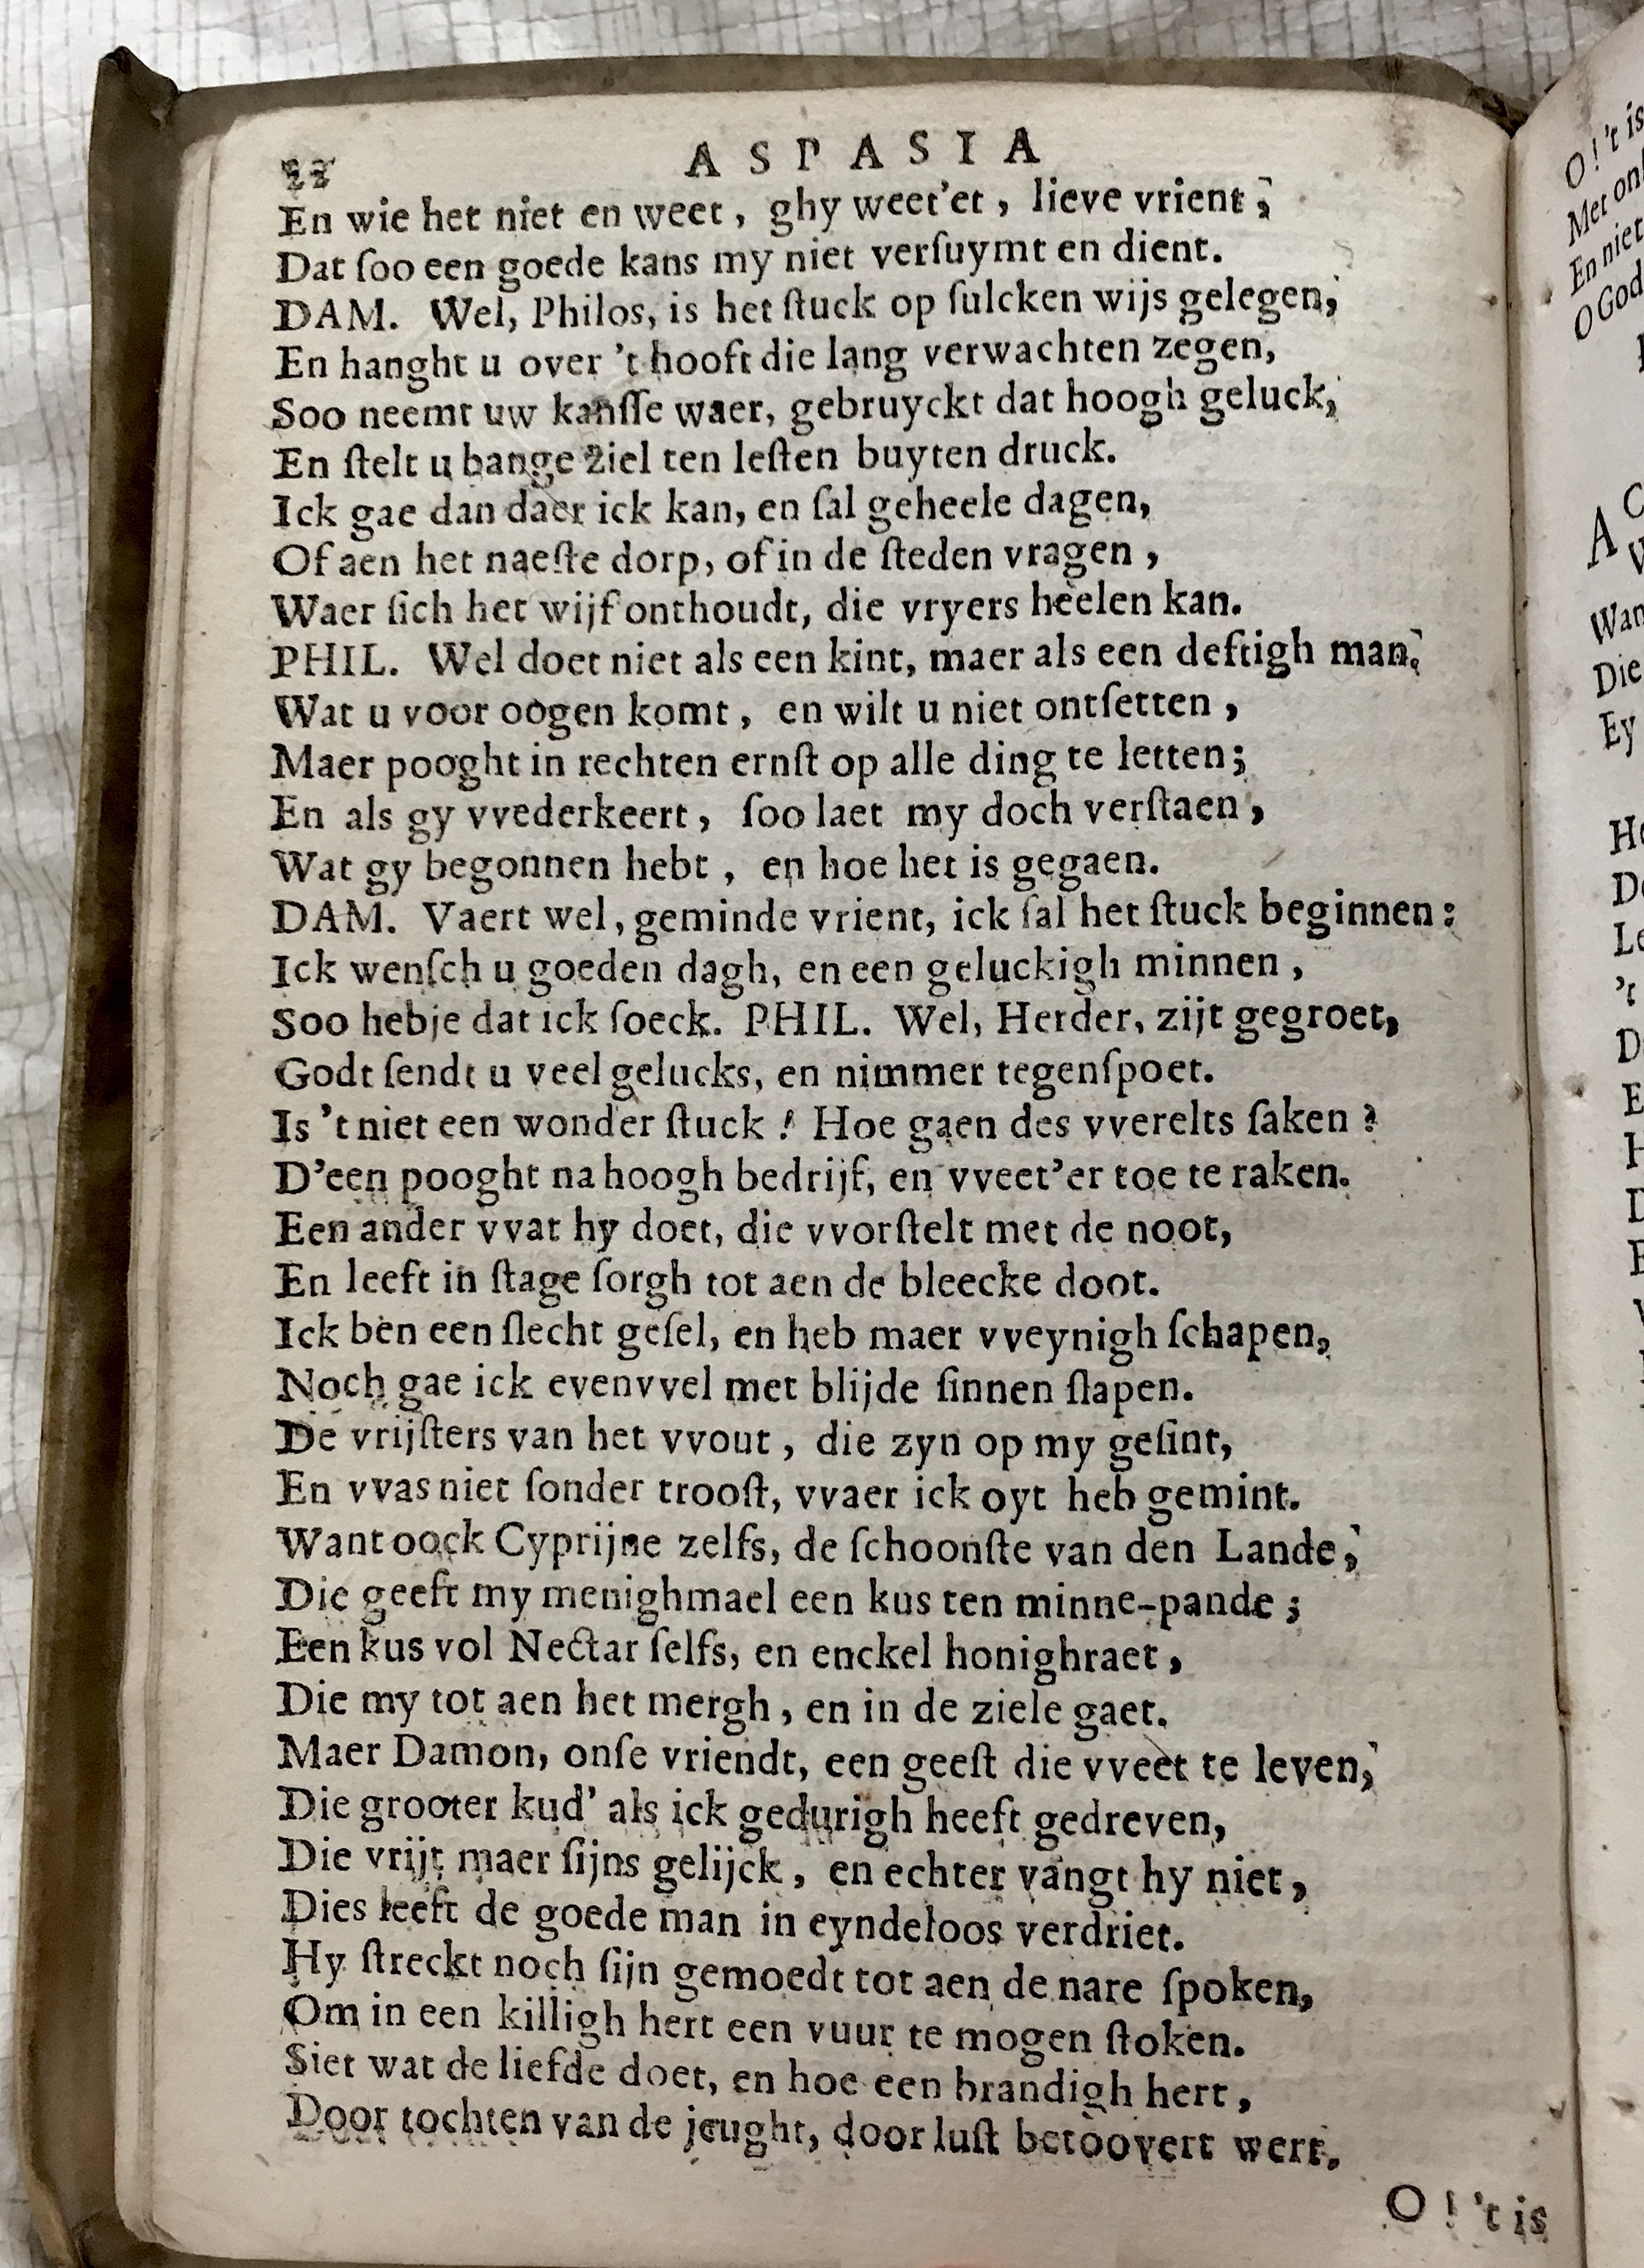 22 ASPASIA
En wie het niet en weet, ghy weet'et, lieve vrient,
Dat ſoo een goede kans my niet verſuymt en dient.
DAM. Wel, Philos, is het ſtuck op ſulcken wijs gelegen,
En hanght u over 't hooft die lang verwachten zegen,
Soo neemt uw kanſſe waer, gebruyckt dat hoogh geluck,
En ſtelt u bange ziel ten leſten buyten druck.
Ick gae dan daer ick kan, en ſal geheele dagen,
Of aen het naeſte dorp, of in de ſteden vragen,
Waer ſich het wijf onthoudt, die vryers heelen kan.
PHIL. Wel doet niet als een kint, maer als een deftigh man,
Wat u voor oogen komt, en wilt u niet ontſetten,
Maer pooght in rechten ernſt op alle ding te letten;
En als gy vvederkeert, ſoo laet my doch verſtaen,
Wat gy begonnen hebt, en hoe het is gegaen.
DAM. Vaert wel, geminde vrient, ick ſal het ſtuck beginnen:
Ick wenſch u goeden dagh, en een geluckigh minnen,
Soo hebje dat ick ſoeck. PHIL. Wel, Herder, zijt gegroet,
Godt ſendt u veel gelucks, en nimmer tegenſpoet.
Is 't niet een wonder ſtuck! Hoe gaen des vverelts ſaken?
D'een pooght na hoogh bedrijf, en vveet'er toe te raken.
Een ander vvat hy doet, die vvorſtelt met de noot,
En leeft in ſtage ſorgh tot aen de bleecke doot.
Ick ben een ſlecht geſel, en heb maer vveynigh ſchapen,
Noch gae ick evenvvel met blijde ſinnen ſlapen.
De vrijſters van het vvout, die zyn op my geſint,
En vvas niet ſonder trooſt, vvaer ick oyt heb gemint.
Want oock Cyprijne zelfs, de ſchoonſte van den Lande,
Die geeft my menighmael een kus ten minne-pande;
Een kus vol Nectar ſelfs, en enckel honighraet,
Die my tot aen het mergh, en in de ziele gaet.
Maer Damon, onſe vriendt, een geeſt die vveet te leven,
Die grooter kud' als ick gedurigh heeft gedreven,
Die vrijt maer ſijns gelijck, en echter vangt hy niet,
Dies leeft de goede man in eyndeloos verdriet.
Hy ſtreckt noch ſijn gemoedt tot aen de nare ſpoken,
Om in een killigh hert een vuur te mogen ſtoken.
Siet wat de liefde doet, en hoe een brandigh hert,
Door tochten van de jeught, door luſt betoovert wert.
O! 't is
O! 't is
Met
En niet
O God
A
Die
Ey